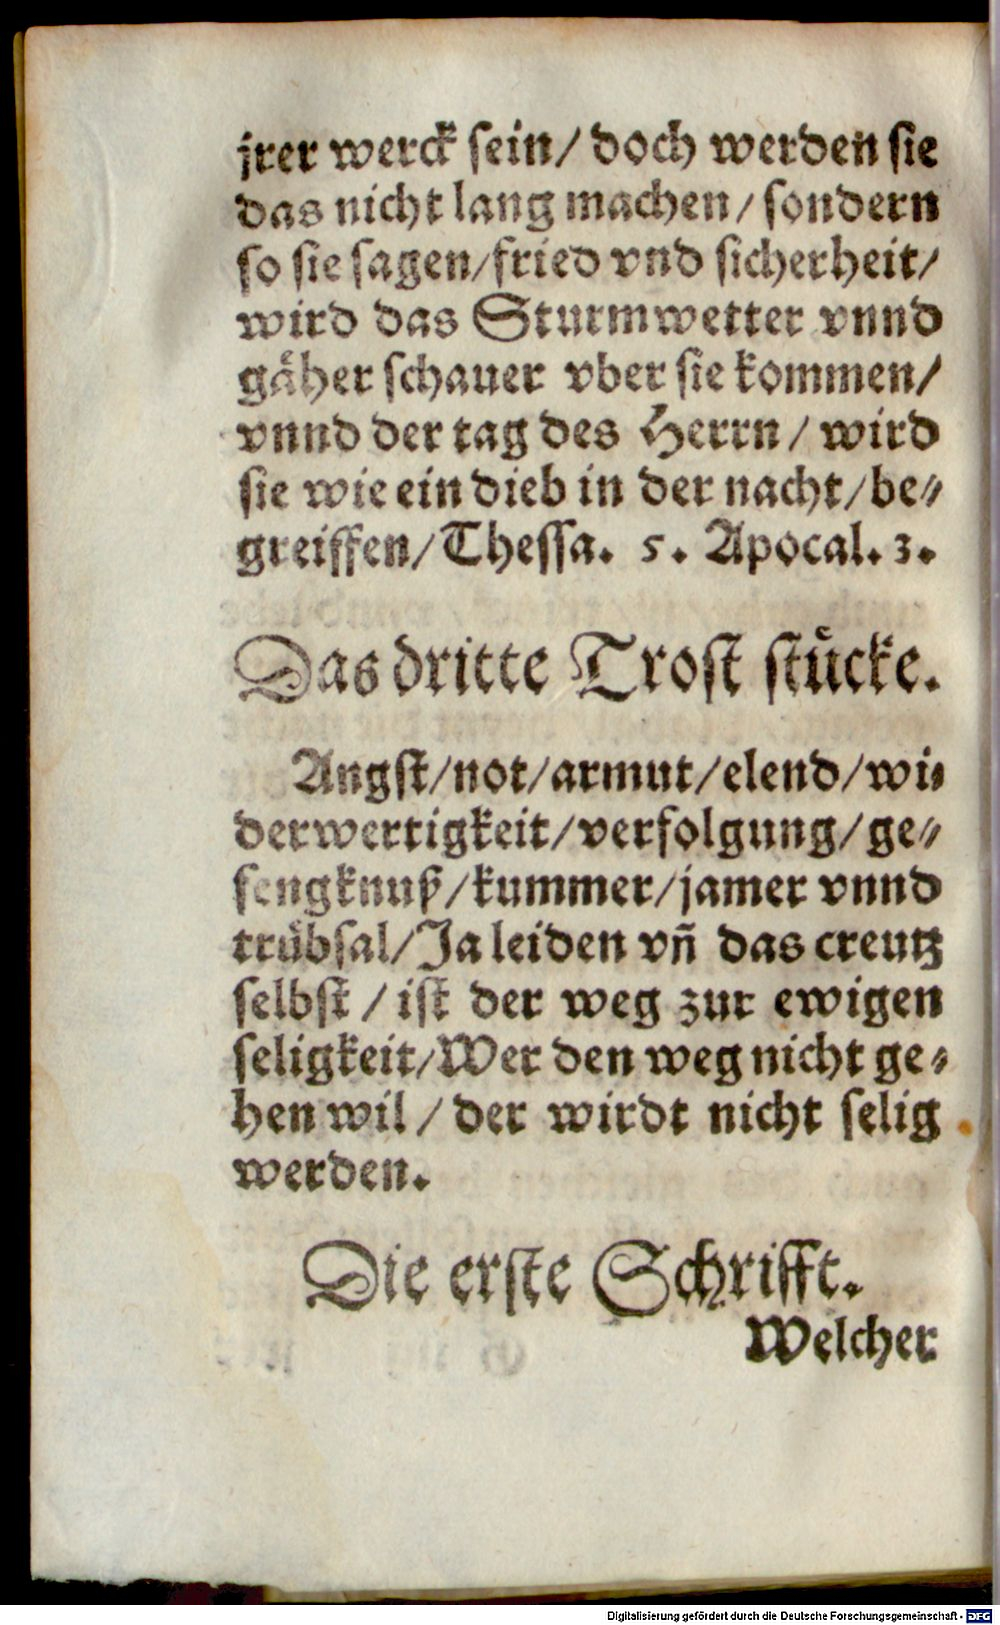 jrer werck sein/ doch werden sie
das nicht lang machen/ sondern
so sie sagen/fried vnd sicherheit/
wird das Sturmwetter vnnd
gäher schauer vber sie kommen/
vnnd der tag des Herrn/ wird
sie wie ein dieb in der nacht/be⸗
greiffen/Thessa. 5. Apocal. 3.
Das dritte Trost stücke.
Angst/not/armut/elend/wi⸗
derwertigkeit/verfolgung/ge⸗
fengknuß/kummer/jamer vnnd
trübsal/Ja leiden vñ das creutz
selbst / ist der weg zur ewigen
seligkeit/Wer den weg nicht ge⸗
hen wil / der wirdt nicht selig
werden.
Die erste Schrifft.
Welcher
Digitalisierung gefördert durch die Deutsche Forschungsgemeinschaft - DFG